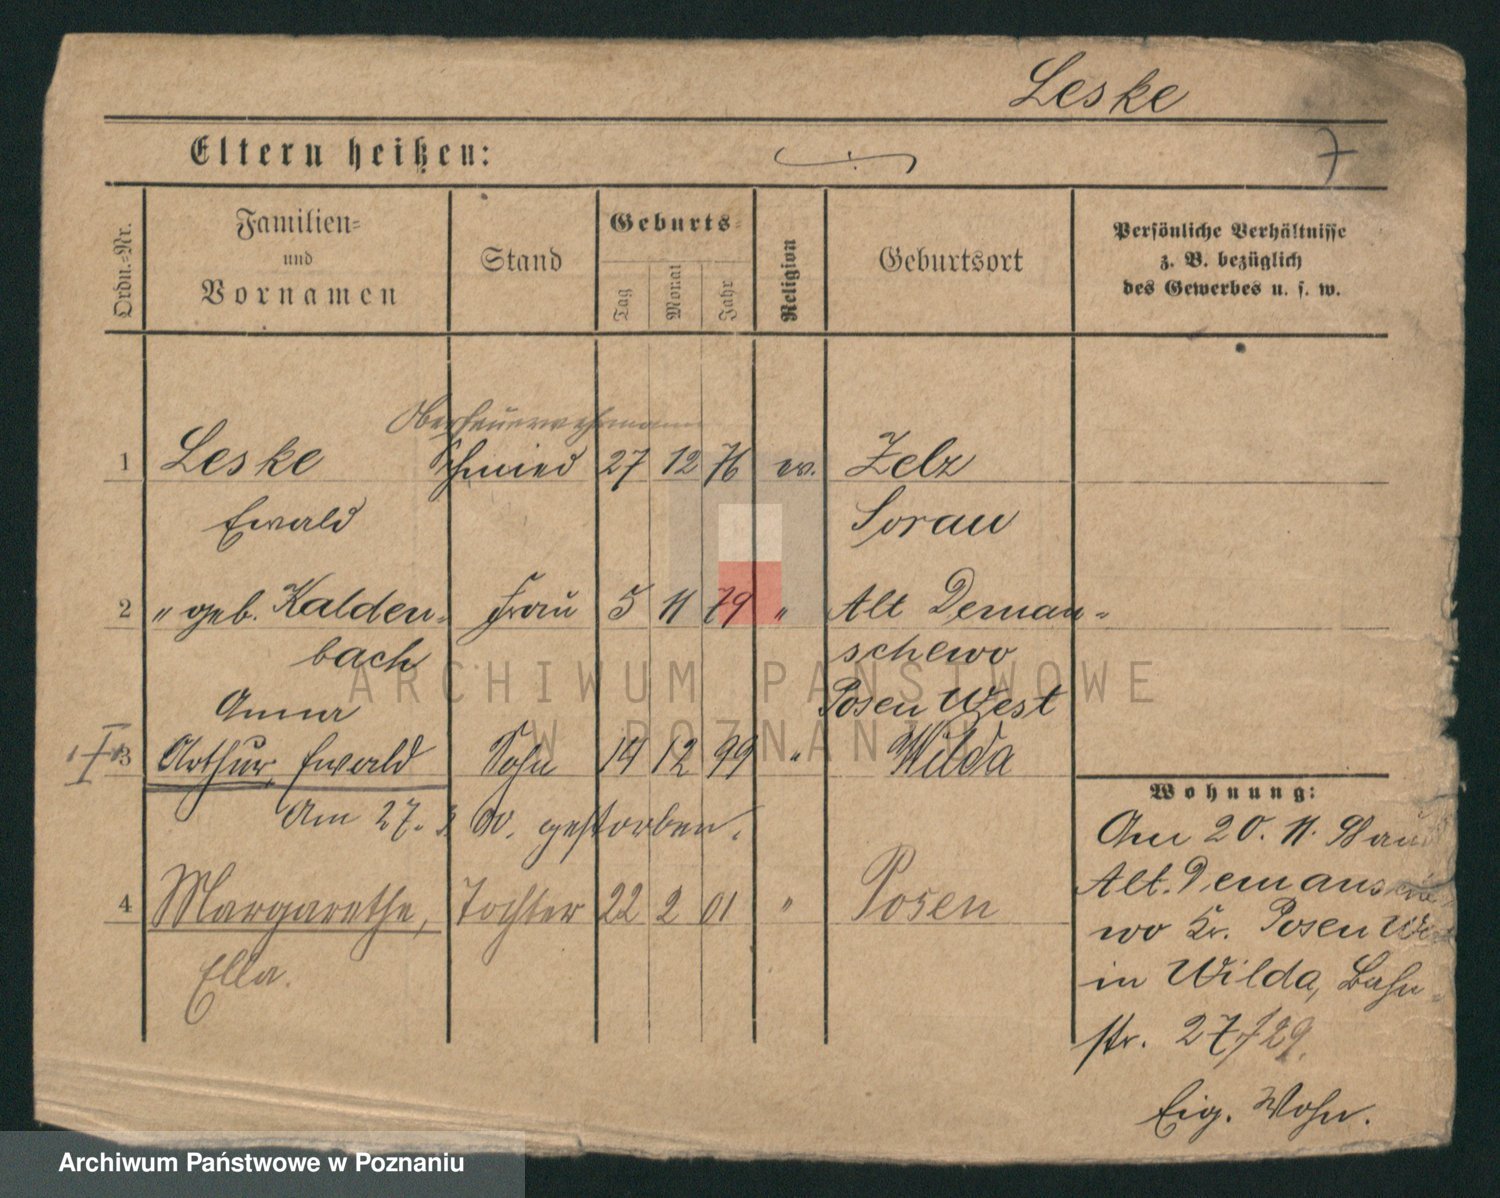 Leske
7
Eltern heißen:
Ordn.-Nr.
Familien=
und
Vornamen
Stand
Geburts=
Tag
Monat
Jahr
Religion
Geburtsort
Persönliche Verhältnisse
z. B. bezüglich
des Gewerbes u. s. w.
Oberfeuerwehrmann
1 Leske Schmied 27 12 76 ev. Zelz
Ewald Sorau
2 " geb. Kalden- Frau 5 11 79 " Alt Deman-
bach schewo
Anna Posen West
3 Arthur, Ewald Sohn 14 12 99 " Wilda
Am 27. 3 00. gestorben.
4 Margarethe, Tochter 22 2 01 " Posen
Ella.
Wohnung:
Am 20. 11.
Alt. Demansche
wo Kr. Posen We
in Wilda, Bahn-
str. 27/29.
Eig. Wohn.
ARCHIWUM PAŃSTWOWE
W POZNANIU
Archiwum Państwowe w Poznaniu